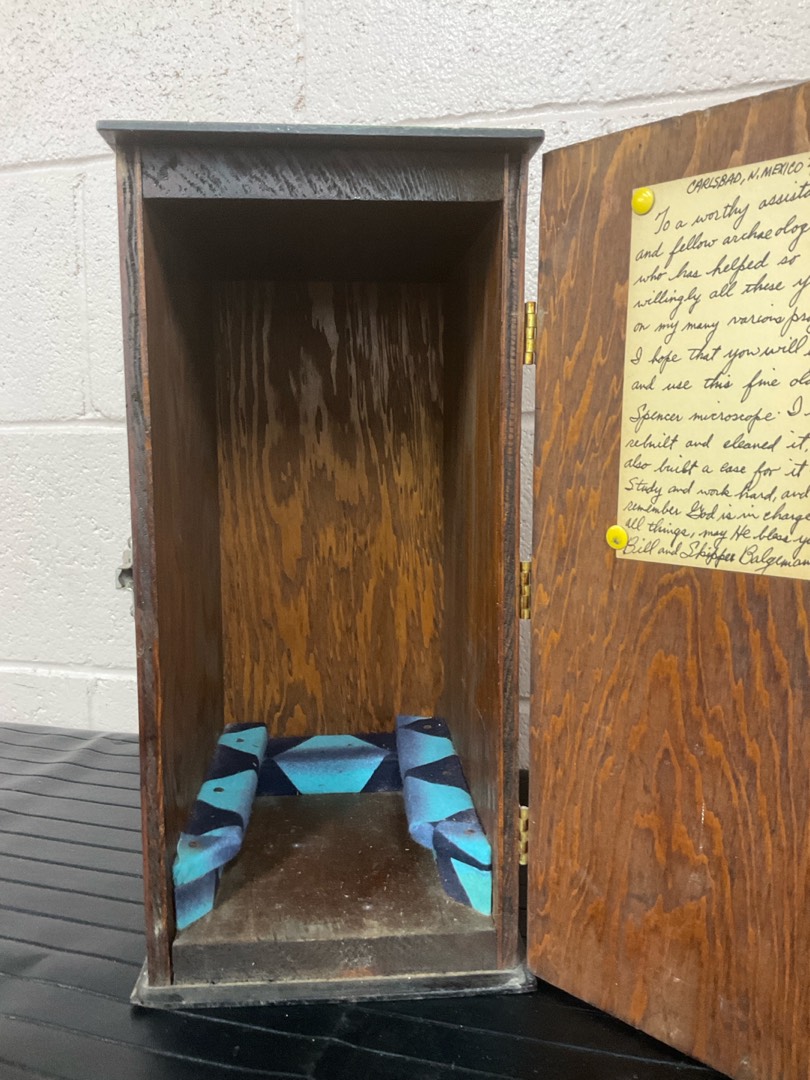 CARLSBAD, N. MEXICO
To a worthy assista
and fellow archaeolog
who has helped so
willingly all these y
on my many various pro
I hope that you will
and use this fine old
Spencer microscope. I
rebuilt and cleaned it,
also built a case for it
Study and work hard, and
remember God is in charge
all things, may He bless yo
Bill and Skipper Balgeman